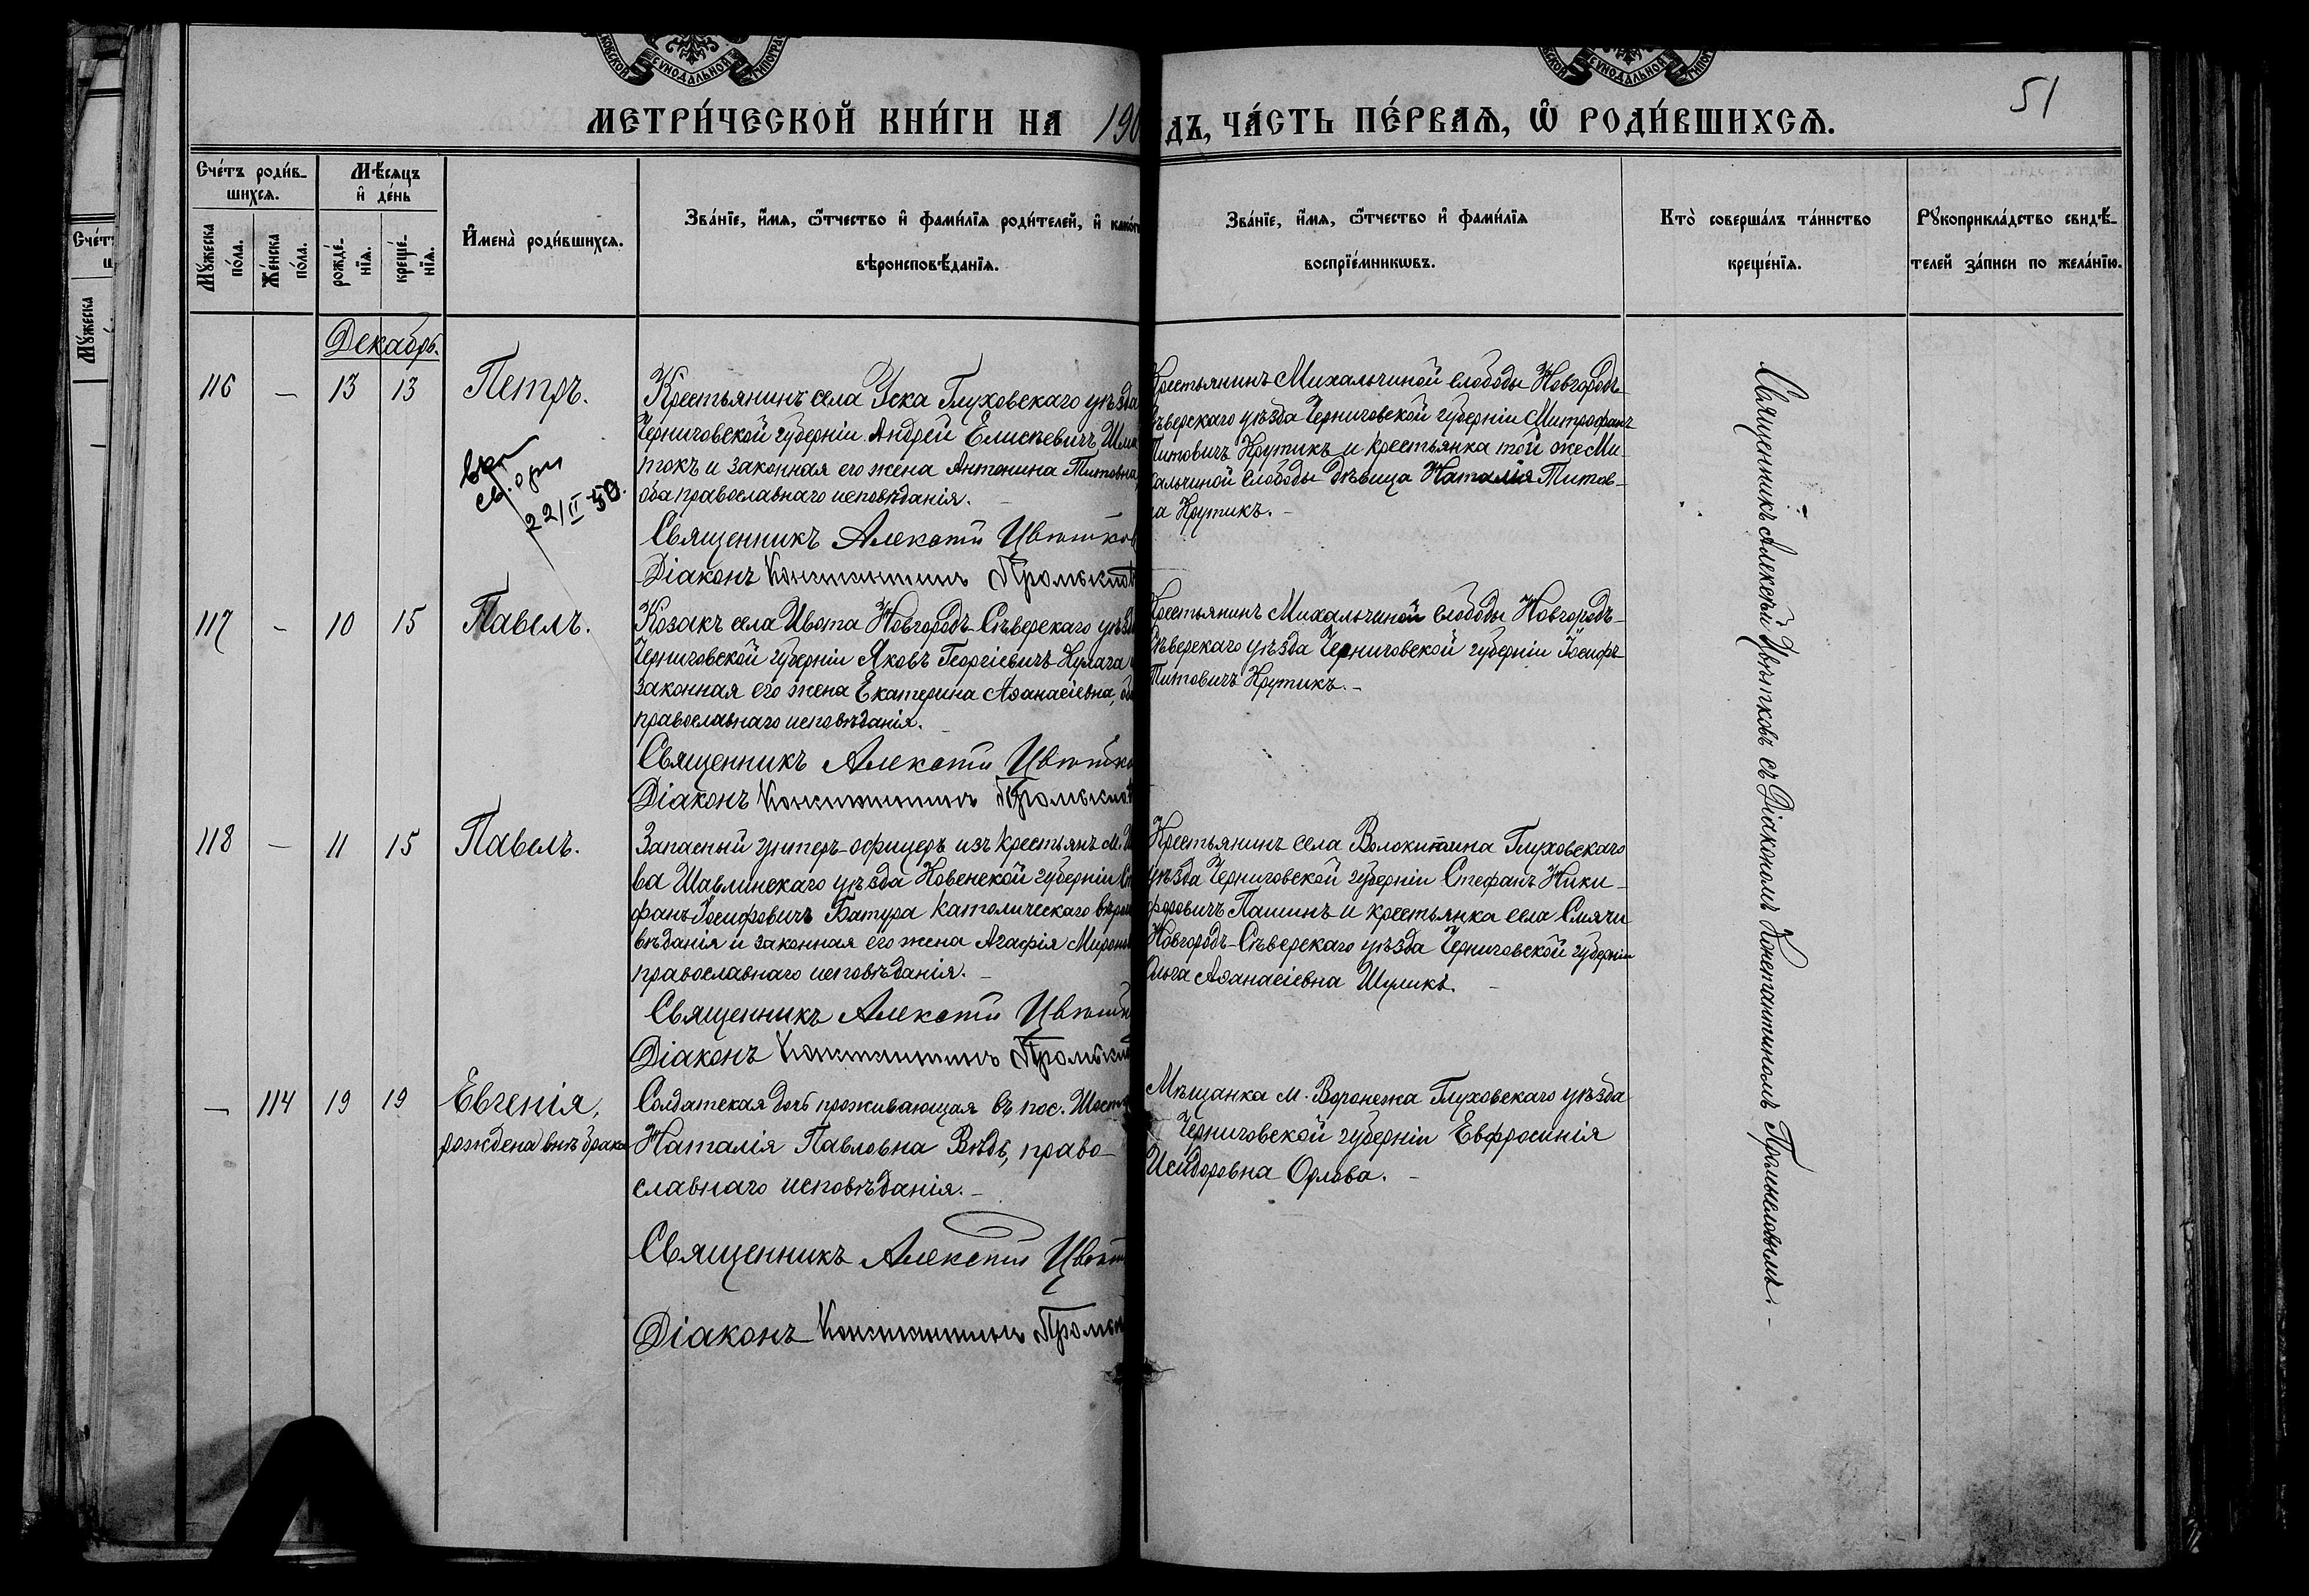 МЕТРИ́ЧЕСКОЙ КНИ́ГИ НА 190
дъ, ЧА́СТЬ ПЕ́РВАѦ, Ѿ РОДИ́ВШИХСѦ.
51
Сче́тъ роди́в-
шихсѧ.
Мѣ́сяцъ
и҆ де́нь
Мꙋ́жеска
по́ла.
Же́нска
по́ла.
рожде́-
нїѧ.
креще́-
нїѧ.
И҆мена̀ роди́вшихсѧ.
Зва́нїе, и҆́мѧ, ѻ҆́тчество и҆ фами́лїѧ роди́телей, и҆ како́г
вѣроисповѣ́данїѧ.
Зва́нїе, и҆́мѧ, ѻ҆́тчество и҆ фами́лїѧ
воспрїе́мникѡвъ.
Кто̀ соверша́лъ та́инство
креще́нїѧ.
Рꙋкоприкла́дство свидѣ́-
телей за́писи по жела́нїю.
Декабрь.
116 — 13 13 Петръ.
Крестьянинъ села Уска Глуховскаго уѣзда
Черниговской губерніи Андрей Елисѣевичъ Шма
токъ и законная его жена Антонина Титовна,
оба православнаго исповѣданія. –
Священникъ Алексѣй Цвѣтков
Діаконъ Константинъ
22/II 50.
Крестьянинъ Михальчиной слободы Новгородъ-
Сѣверскаго уѣзда Черниговской губерніи Митрофанъ
Титовичъ Крутикъ и крестьянка той же Ми-
хальчиной слободы дѣвица Наталія Титов-
на Крутикъ. –
117 – 10 15 Павелъ.
Козакъ села Ивота Новгородъ-Сѣверскаго уѣзд
Черниговской губерніи Яковъ Георгіевичъ Кулага
законная его жена Екатерина Аѳанасіевна, об
православнаго исповѣданія. –
Священникъ Алексѣй Цвѣтко
Діаконъ Константинъ
Крестьянинъ Михальчиной слободы Новгородъ-
Сѣверскаго уѣзда Черниговской губерніи Іосифъ
Титовичъ Крутикъ. –
118 — 11 15 Павелъ.
Запасный унтеръ-офицеръ изъ крестьянъ м.
ва Шавлинскаго уѣзда Ковенской губерніи Сте
фанъ Іосифовичъ Батура католическаго вѣро
вѣданія и законная его жена Агафія Мирон
православнаго исповѣданія. –
Священникъ Алексѣй Цвѣтк
Діаконъ Константинъ
Крестьянинъ села Волокитина Глуховскаго
уѣзда Черниговской губерніи Стефанъ Ники-
форовичъ Пашинъ и крестьянка села Смячи
Новгородъ-Сѣверскаго уѣзда Черниговской губерніи
Ольга Аѳанасіевна Шуликъ. –
— 114 19 19 Евгенія,
рождена внѣ брака
Солдатская дочь проживающая въ пос. Шост
Наталія Павловна Вѣдь, право-
славнаго исповѣданія. –
Священникъ Алексѣй Цвѣт
Діаконъ Константинъ
Мѣщанка м. Воронежа Глуховскаго уѣзда
Черниговской губерніи Евфросинія
Исидоровна Орлова. –
Священникъ Алексѣй Цвѣтковъ съ Діакономъ Константиномъ Промысловымъ. –